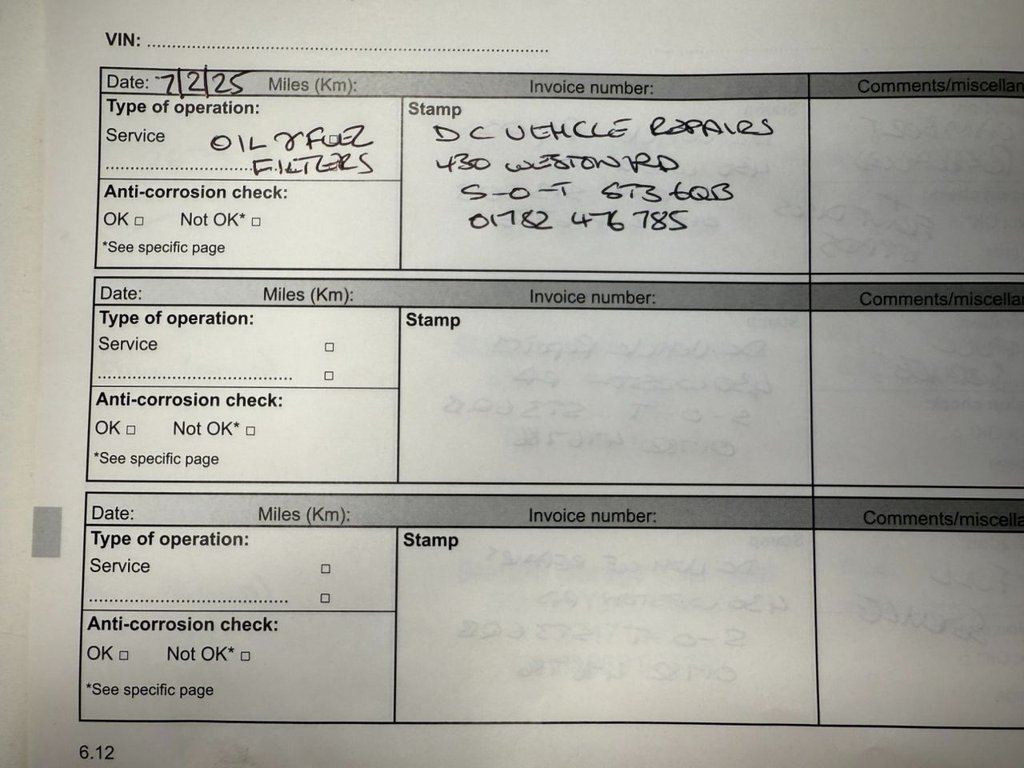 VIN: ........................................................................
Date: 7/2/25 Miles (Km): Invoice number: Comments/miscellan
Type of operation: Stamp
Service OIL & FUEL DC VEHICLE REPAIRS
..............................FILTERS 430 WESTON RD
Anti-corrosion check: S-O-T ST3 6QB
OK □ Not OK* □ 01782 476785
*See specific page
Date: Miles (Km): Invoice number: Comments/miscella
Type of operation: Stamp
Service □
........................................ □
Anti-corrosion check:
OK □ Not OK* □
*See specific page
Date: Miles (Km): Invoice number: Comments/miscella
Type of operation: Stamp
Service □
........................................ □
Anti-corrosion check:
OK □ Not OK* □
*See specific page
6.12